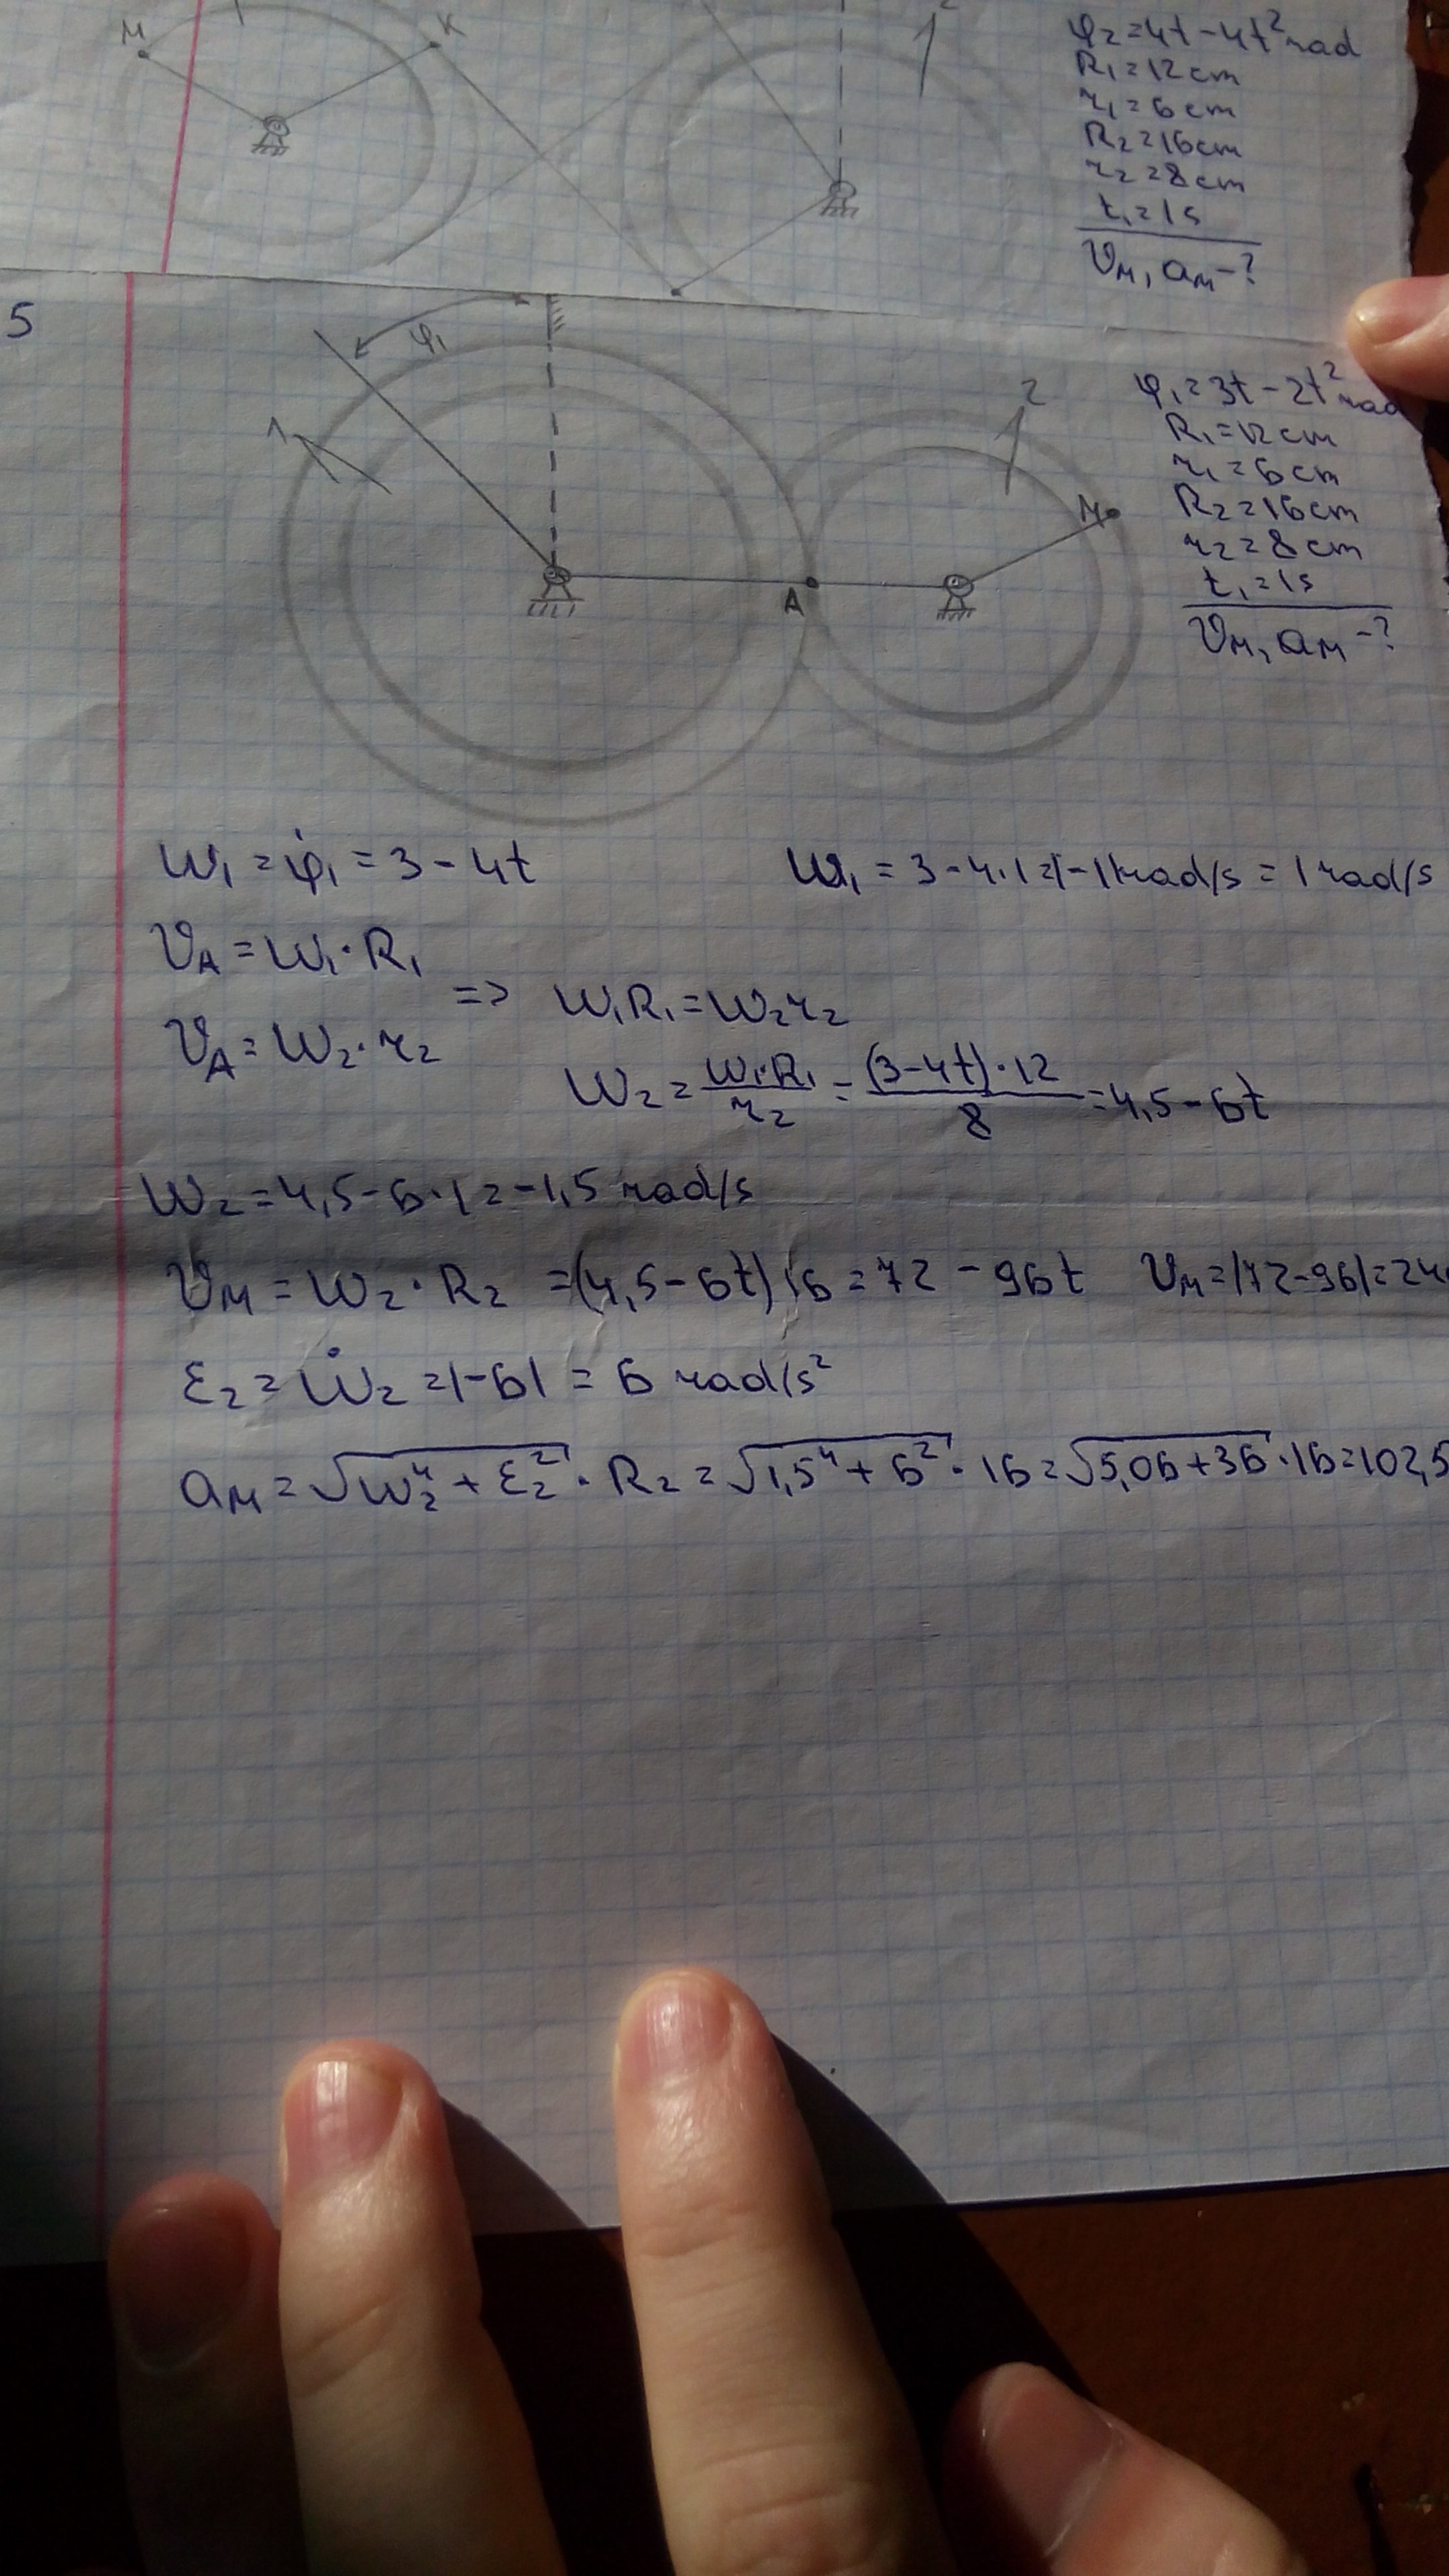 M K 2
φ₂=4t-4t² rad
R₁=12 cm
r₁=6 cm
R₂=16 cm
r₂=8 cm
t₁=1s
υM, aM-?
5
φ₁
1
2
M
A
φ₁=3t-2t² rad
R₁=12 cm
r₁=6 cm
R₂=16 cm
r₂=8 cm
t₁=1s
υM, aM-?
ω₁=φ̇₁=3-4t ω₁=3-4·1=|-1| rad/s=1 rad/s
υA=ω₁·R₁
=> ω₁R₁=ω₂r₂
υA=ω₂·r₂
ω₂=ω₁·R₁/r₂=(3-4t)·12/8=4,5-6t
ω₂=4,5-6·1=-1,5 rad/s
υM=ω₂·R₂=(4,5-6t)16=72-96t υM=|72-96|=24
ε₂=ω̇₂=|-6|=6 rad/s²
aM=√(ω₂⁴+ε₂²)·R₂=√(1,5⁴+6²)·16=√(5,06+36)·16=102,5